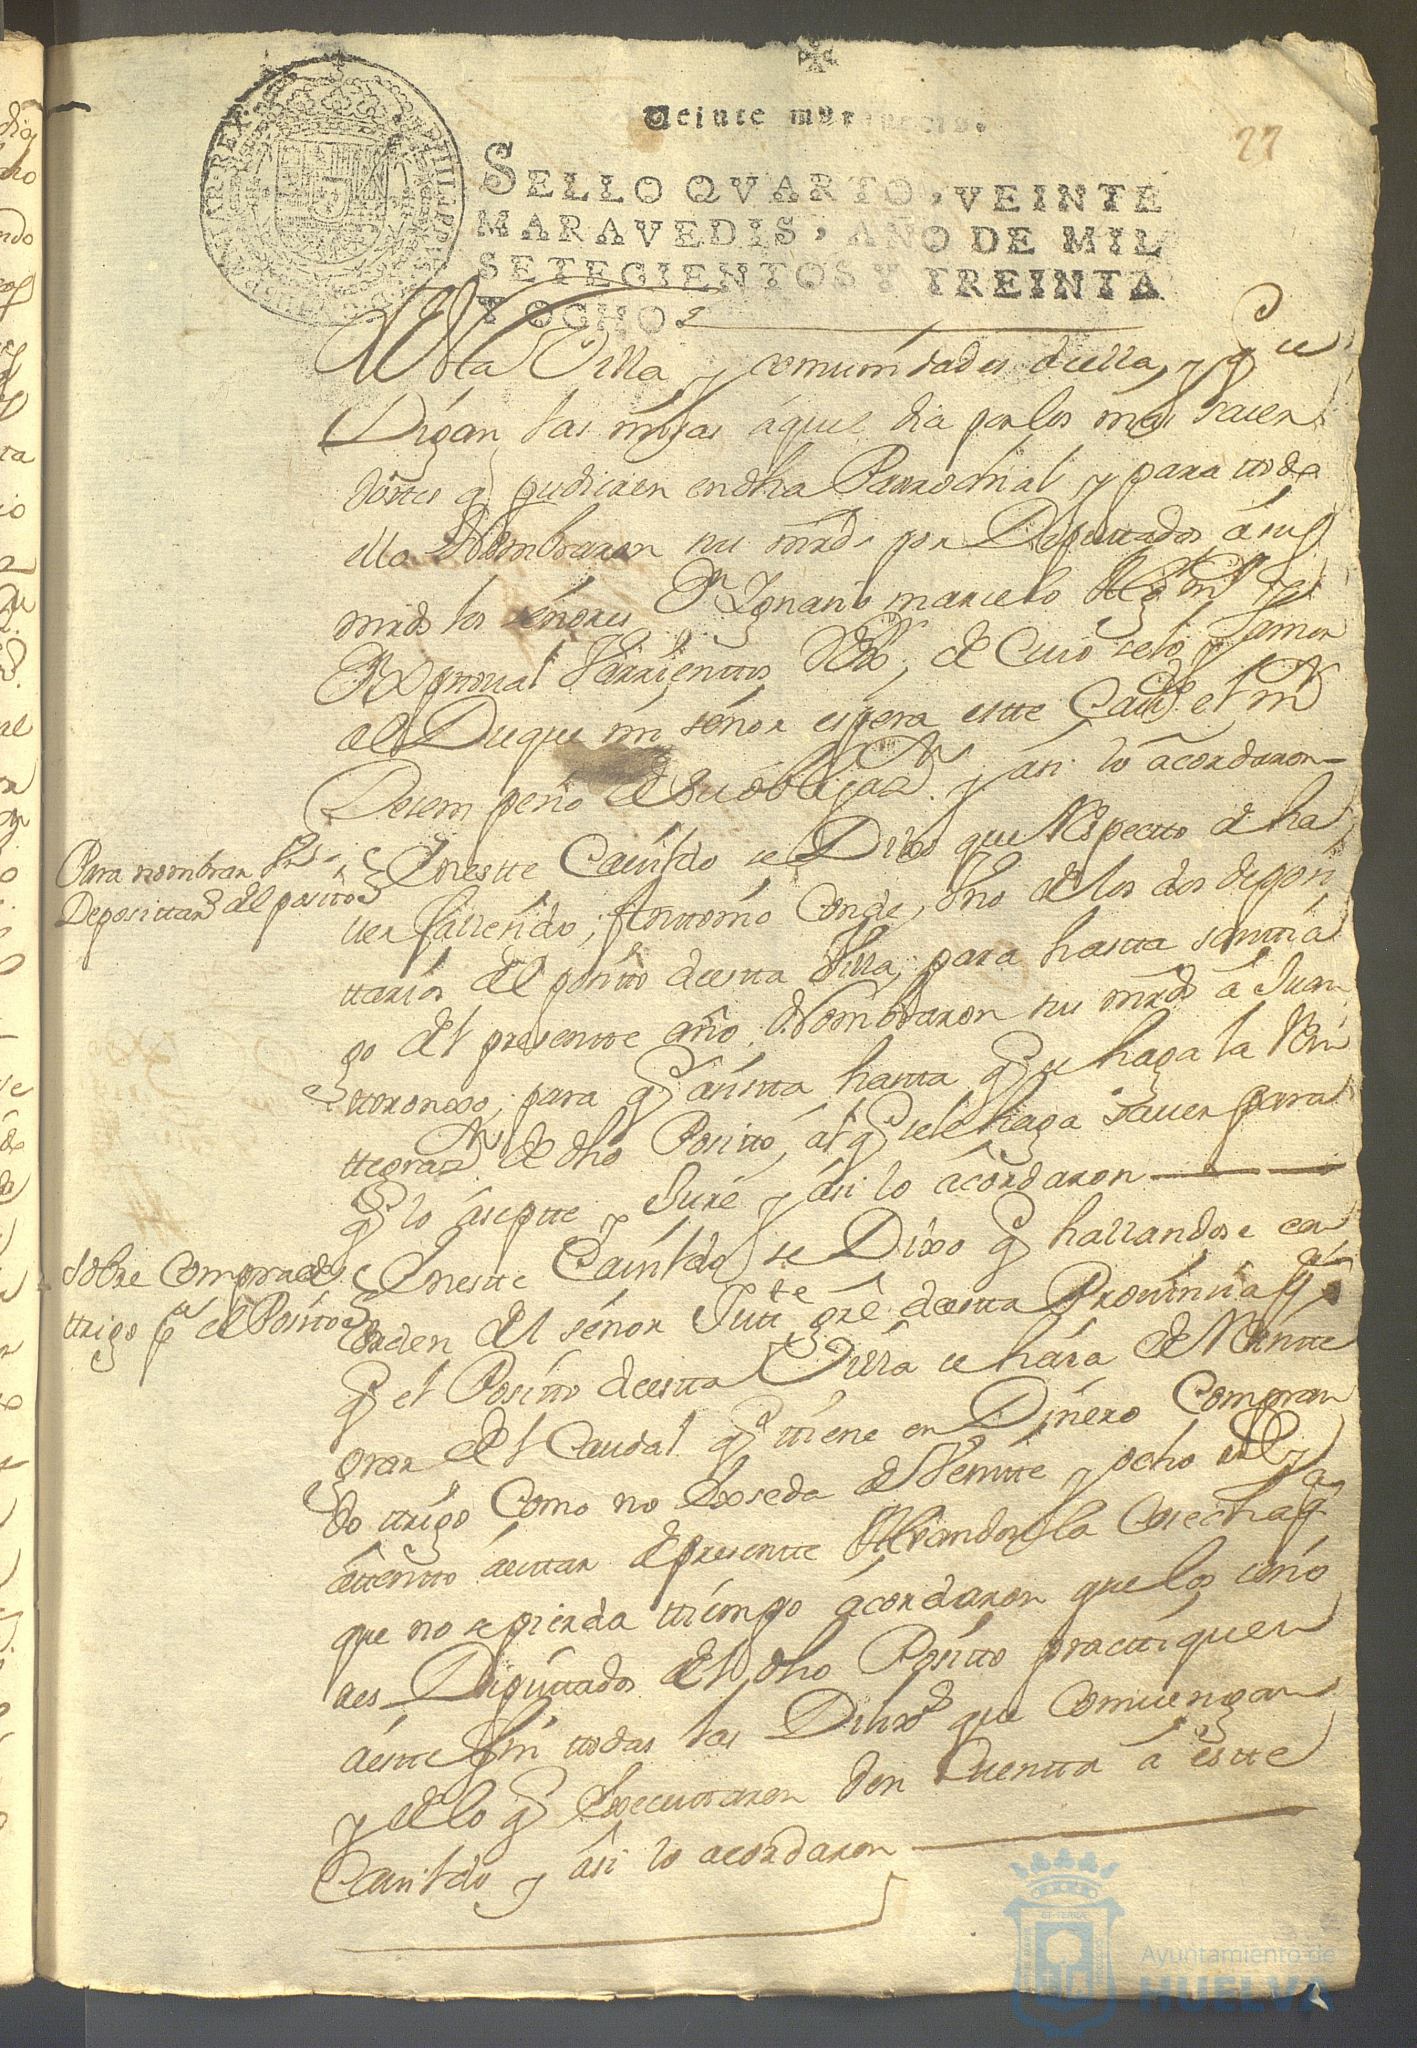 Veinte maravedis.
27
SELLO QVARTO, VEINTE
MARAVEDIS, AÑO DE MIL
SETECIENTOS Y TREINTA
Y OCHO.
esta Villa, y comunidades de ella, y que se
Digan las misas aquel dia por los mas sacer
dottes q pudieren en dha Parrochial y para ttodo
ello Nombraron sus mrds por Deputtados á sus
mrds los señores Dn Ygnazio Marcelo
Barrienttos de cuio celo y amor
al Duque mi señor espera estte Cavdo el mr
Desempeño de su obligazn y asi lo acordaron
Para nombrar
Deposittario del positto
En estte Cavildo se Dixo que Respecto de ha
ver fallezido, Anttonio Conde, Vno de los dos deposi
ttarios del positto de estta Villa, para hasta santtia
go del presentte año Nombraron sus mrds á Juan
ttoronxo, para q asistta hastta q se haga la Rein
ttegrazn de dho Positto, al q se le haga saver para
q lo aseptte y Jure y asi lo acordaron
Sobre Compra de
ttrigo pa el Positto
En estte Cavildo se Dixo q hallandose con
orden del señor Intte gral de estta Provinzia pa
q el Positto de estta Villa se hára de Reintte
grar del Caudal q ttiene en Dinero Compran
do ttrigo Como no Exseda de Veintte y ocho rrs y
attentto áestar de presentte la Cosecha pa
que no se pierda ttiempo acordaron que los seño
res Diputtados del dho Positto practtiquen
a estte fin ttodas las Dilixs que Comvengan
y de lo q Executtaren den Cuentta á estte
Cavildo y asi lo acordaron
Ayuntamiento de
HUELVA